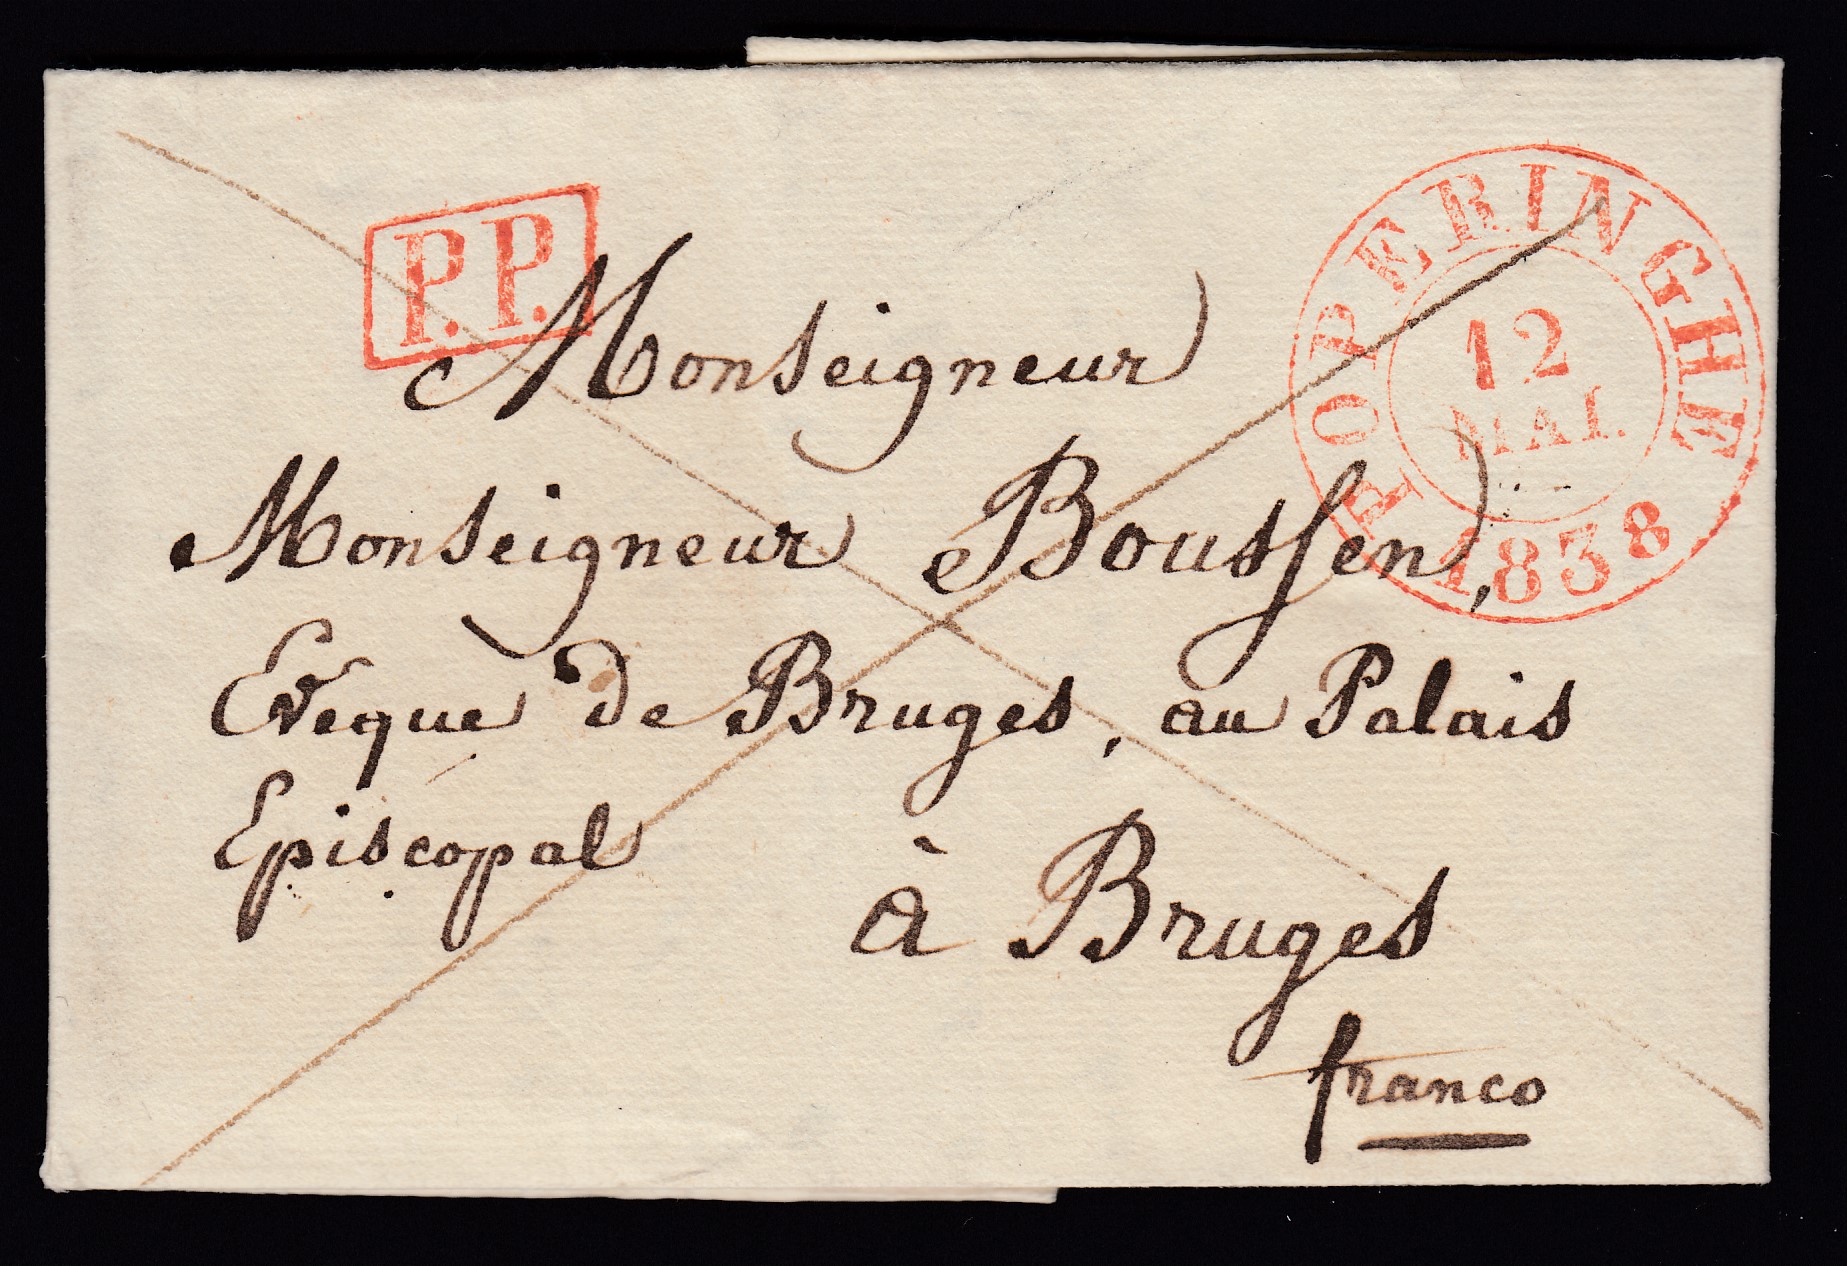 P.P.
POPERINGHE
12
MAI.
1838
Monseigneur
Monseigneur Boussen,
Evêque de Bruges, au Palais
Épiscopal
à Bruges
franco